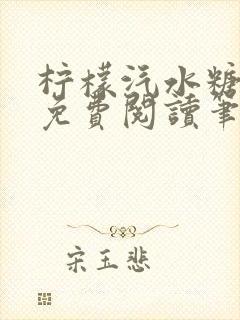 柠檬汽水糖
免費閱讀笔
宋玉悲